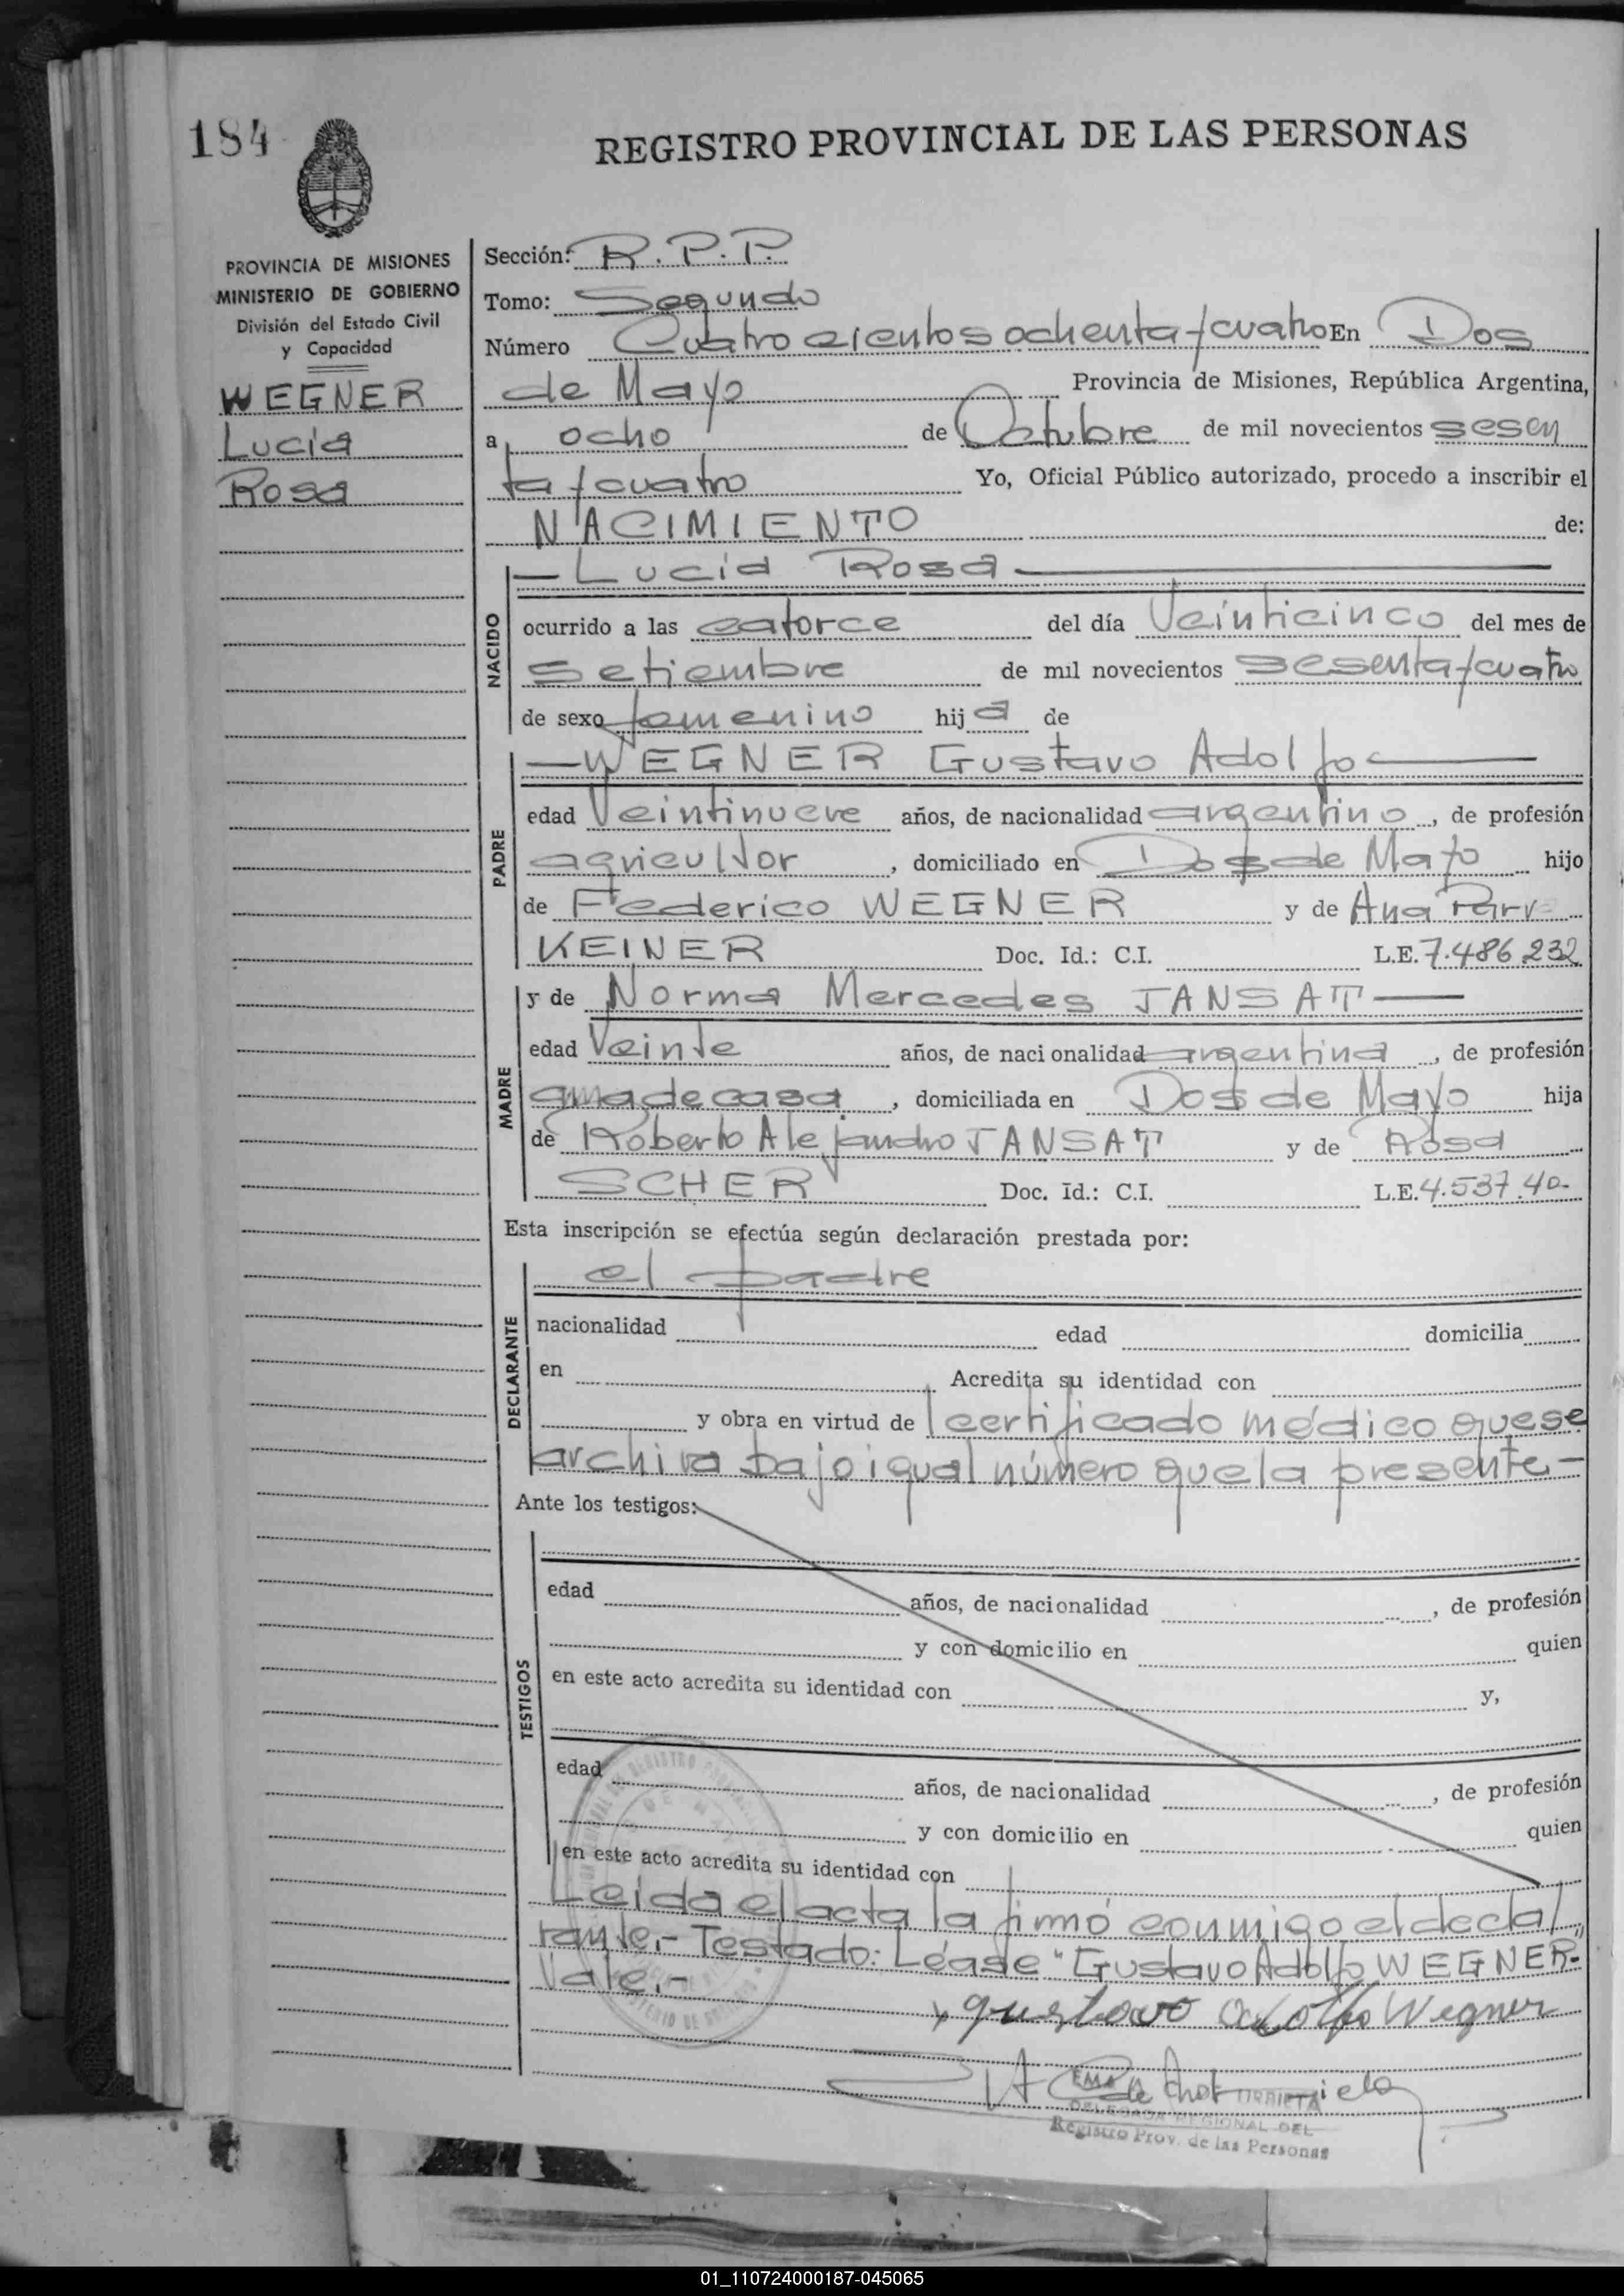 184
REGISTRO PROVINCIAL DE LAS PERSONAS
PROVINCIA DE MISIONES
MINISTERIO DE GOBIERNO
División del Estado Civil
y Capacidad
WEGNER
Lucía
Rosa
Sección: R. P. P.
Tomo: Segundo
Número Cuatrocientos ochenta y cuatro En Dos
de Mayo Provincia de Misiones, República Argentina,
a ocho de Octubre de mil novecientos sesen
ta y cuatro Yo, Oficial Público autorizado, procedo a inscribir el
NACIMIENTO de:
NACIDO
— Lucía Rosa —
ocurrido a las catorce del día Veinticinco del mes de
Setiembre de mil novecientos sesenta y cuatro
de sexo femenino hija de
PADRE
— WEGNER Gustavo Adolfo —
edad Veintinueve años, de nacionalidad argentino, de profesión
agricultor, domiciliado en Dos de Mayo hijo
de Federico WEGNER y de Ana
KEINER Doc. Id.: C.I. L.E. 7.486.232
MADRE
y de Norma Mercedes JANSAT —
edad Veinte años, de nacionalidad argentina, de profesión
ama de casa, domiciliada en Dos de Mayo hija
de Roberto Alejandro JANSAT y de Rosa
SCHER Doc. Id.: C.I. L.E. 4.537.40-
Esta inscripción se efectúa según declaración prestada por:
DECLARANTE
el padre
nacionalidad edad domicilia
en Acredita su identidad con
y obra en virtud de certificado médico que se
archiva bajo igual número que la presente -
Ante los testigos:
TESTIGOS
edad años, de nacionalidad , de profesión
y con domicilio en quien
en este acto acredita su identidad con y,
edad años, de nacionalidad , de profesión
y con domicilio en quien
en este acto acredita su identidad con
Leida el acta la firmó conmigo el decla/
rante.- Testado: Léase "Gustavo Adolfo WEGNER-"
Vale.-
gustavo adolfo Wegner
DELEGADA REGIONAL DEL
Registro Prov. de las Personas
01_110724000187-045065